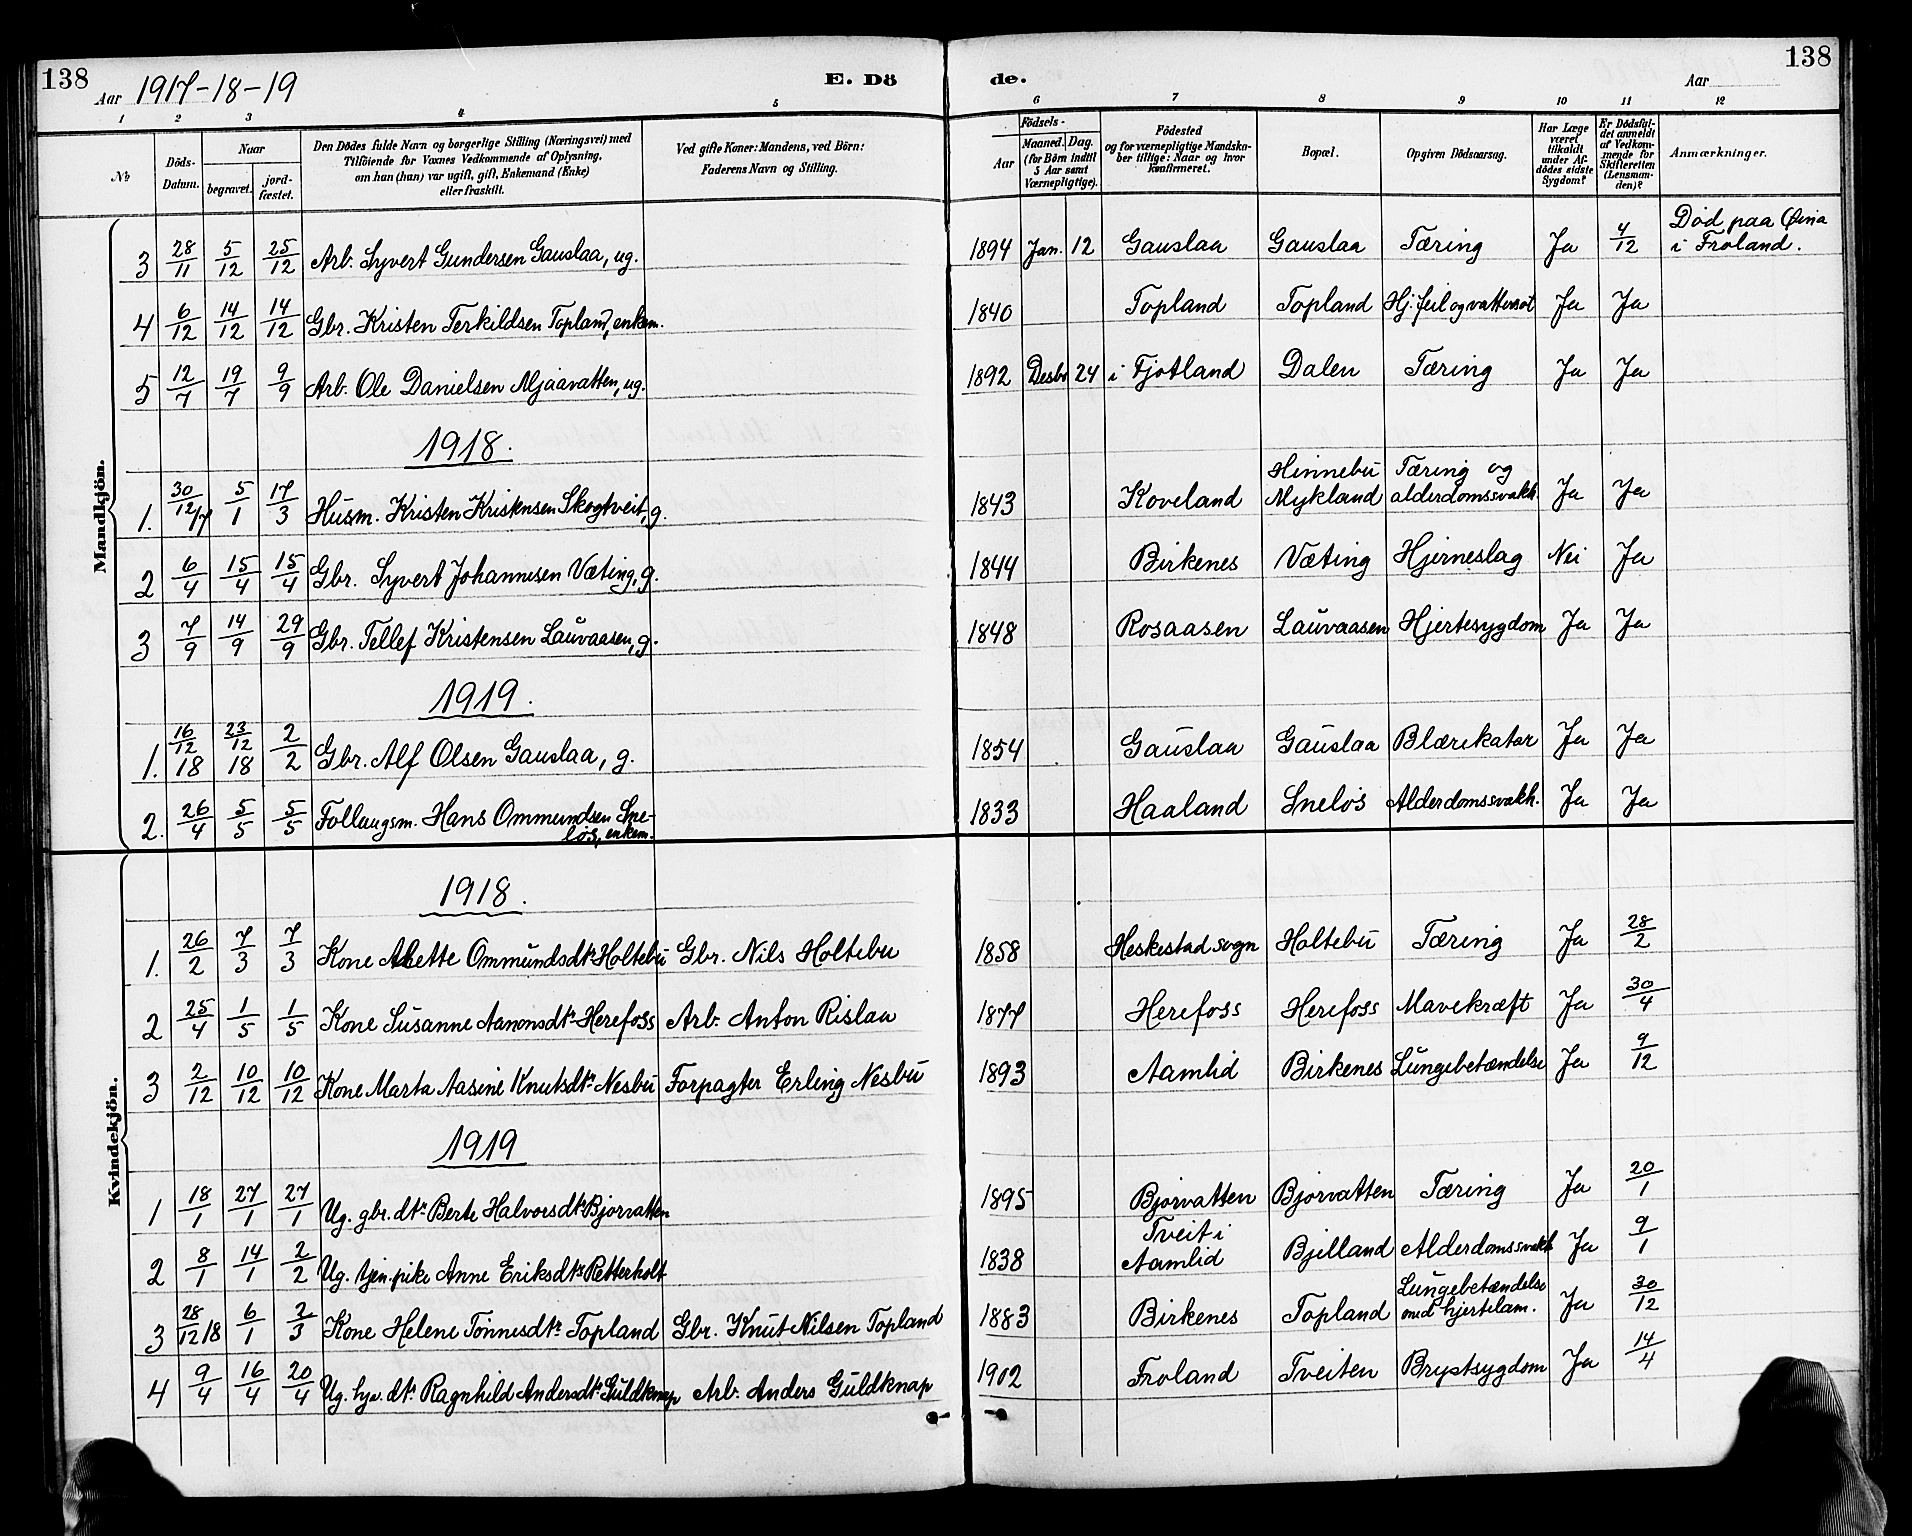 138
Aar 1917-18-19
E. Dö
de.
Aar
138
1 2 3 4 5 6 7 8 9 10 11 12
No
Döds-Datum.
Naar
begravet.
jord-fæstet.
Den Dödes fulde Navn og borgerlige Stilling (Næringsvei) med
Tilföiende for Voxnes Vedkommende af Oplysning,
om han (hun) var ugift, gift, Enkemand (Enke)
eller fraskilt.
Ved gifte Koner: Mandens, ved Börn:
Faderens Navn og Stilling.
Födsels-
Aar
Maaned. (for Börn indtil 5 Aar samt Værnepligtige).
Dag.
Födested
og for værnepligtige Mandska-
ber tillige: Naar og hvor
konfirmeret.
Bopæl.
Opgiven Dödsaarsag.
Har Læge været tilkaldt under Af-dödes sidste Sygdom?
Er Dödsfal-det anmeldt af Vedkom-mende for Skifteretten (Lensman-den)?
Anmærkninger.
Mandkjön.
3 28/11 5/12 25/12 Arb. Syvert Gundersen Gauslaa, ug. 1894 Jan. 12 Gauslaa Gauslaa Tæring Ja 4/12 Död paa Öina i Froland.
4 6/12 14/12 14/12 Gbr. Kristen Terkildsen Topland, enkem. 1840 Topland Topland Hj. feil og vattersot Ja Ja
5 12/7 19/7 9/9 Arb. Ole Danielsen Mjaavatten, ug. 1892 Desbr 24 i Fjotland Dalen Tæring Ja Ja
1918.
1. 30/12 17 5/1 17/3 Husm. Kristen Kristensen Skogtveit, g. 1843 Koveland Hinnebu Mykland Tæring og alderdomssvakh. Ja Ja
2 6/4 15/4 15/4 Gbr. Syvert Johannesen Væting, g. 1844 Birkenes Væting Hjerneslag Nei Ja
3 7/9 14/9 29/9 Gbr. Tellef Kristensen Lauvaasen, g. 1848 Rosaasen Lauvaasen Hjertesygdom Ja Ja
1919.
1. 16/12 18 23/12 18 2/2 Gbr. Alf Olsen Gauslaa, g. 1854 Gauslaa Gauslaa Blærekatar Ja Ja
2. 26/4 5/5 5/5 Follaugsm. Hans Ommundsen Sne-
lös, enkem. 1833 Haaland Snelös Alderdomssvakh. Ja Ja
Kvindekjön.
1918.
1. 26/2 7/3 7/3 Kone Alette Ommundsdtr Holtebu Gbr. Nils Holtebu 1858 Heskestad sogn Holtebu Tæring Ja 28/2
2 25/4 1/5 1/5 Kone Susanne Aanonsdtr Herefoss Arb. Anton Rislaa 1877 Herefoss Herefoss Mavekræft Ja 30/4
3 2/12 10/12 10/12 Kone Marta Aasine Knutsdtr Nesbu Forpagter Erling Nesbu 1893 Aamlid Birkenes Lungebetændelse Ja 9/12
1919
1 18/1 27/1 27/1 Ug. gbr. dtr Berte Halvorsdtr Bjorvatten 1895 Bjorvatten Bjorvatten Tæring Ja 20/1
2 8/1 14/1 2/2 Ug. tjen. pike Anne Eriksdtr Retterholt 1838 Tveit i Aamlid Bjelland Alderdomssvakh Ja 9/1
3 28/12 18 6/1 2/3 Kone Helene Tönnesdtr Topland Gbr. Knut Nilsen Topland 1883 Birkenes Topland Lungebetændelse med hjertelam. Ja 30/12
4 9/4 16/4 20/4 Ug. hjv. dtr. Ragnhild Andersdtr Guldknap Arb. Anders Guldknap 1902 Froland Tveiten Brystsygdom Ja 14/4